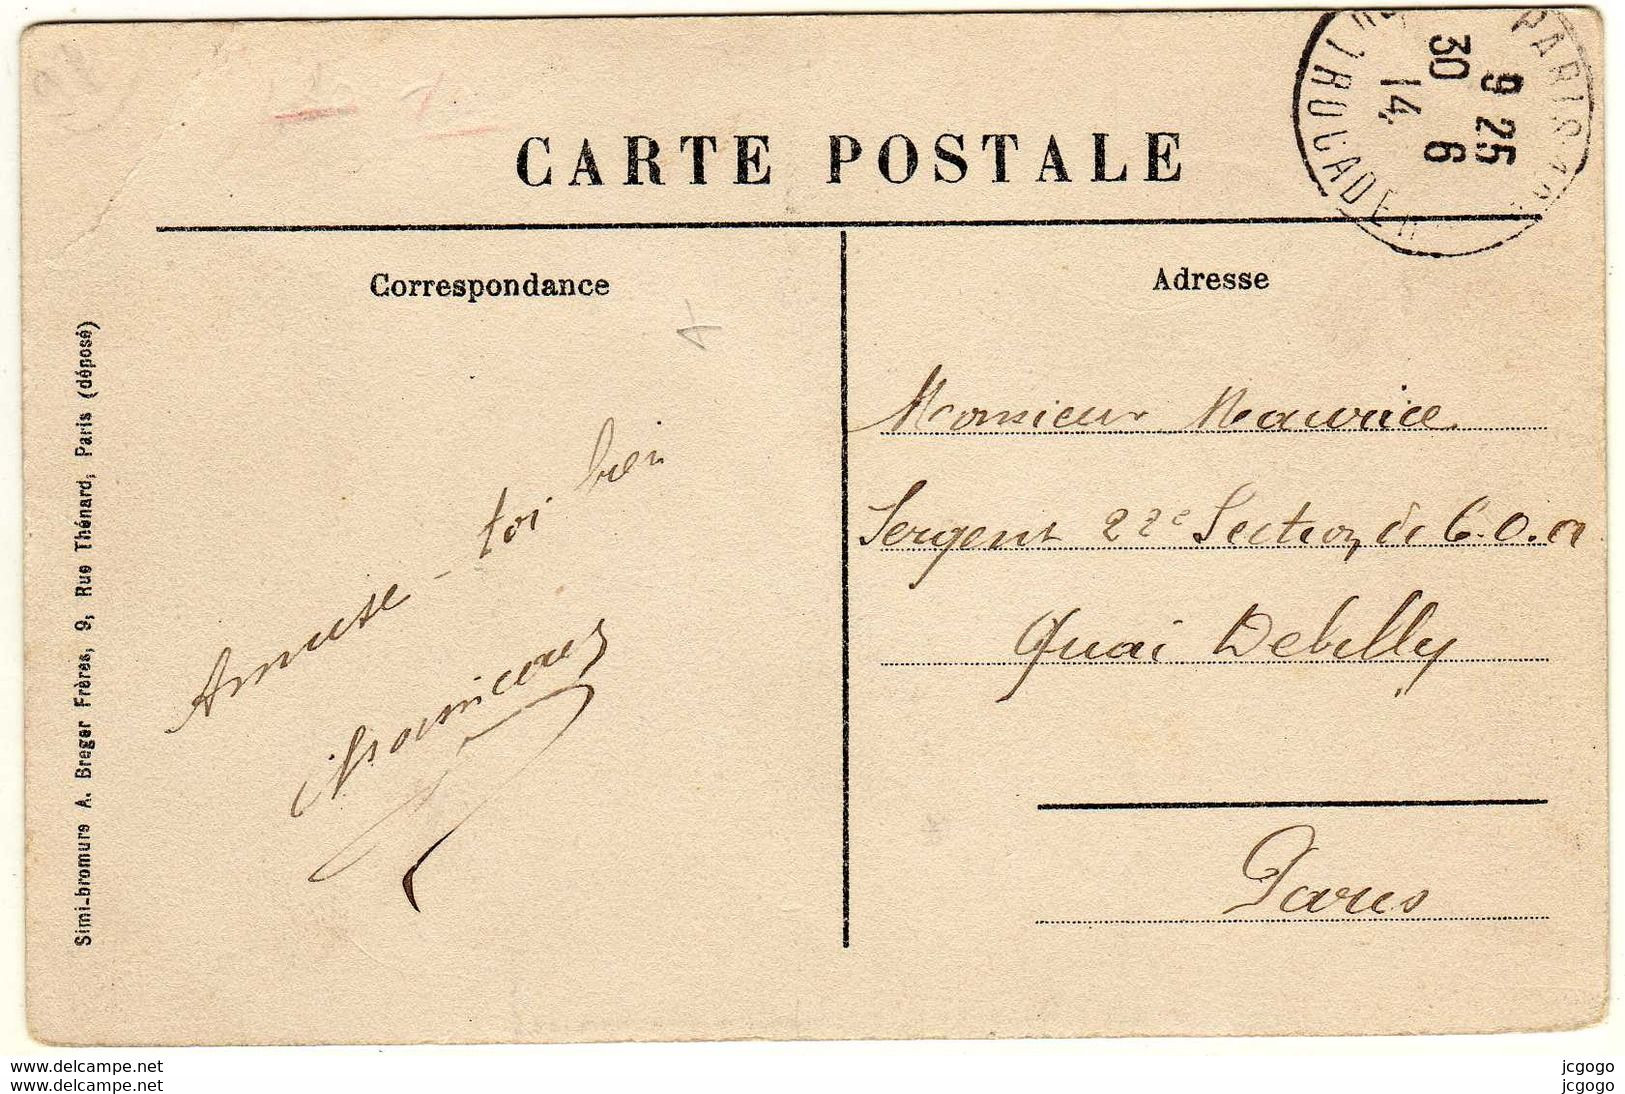 CARTE POSTALE
PARIS
9 25
30 6
14
TROCADER
Correspondance
Adresse
Amuse-toi bien
Monsieur Maurice
Sergent 22e Section de C.O.A
Quai Debilly
Paris
Simi-bromure A. Breger Frères, 9, Rue Thénard, Paris (déposé)
www.delcampe.net
www.delcampe.net
jcgogo
jcgogo